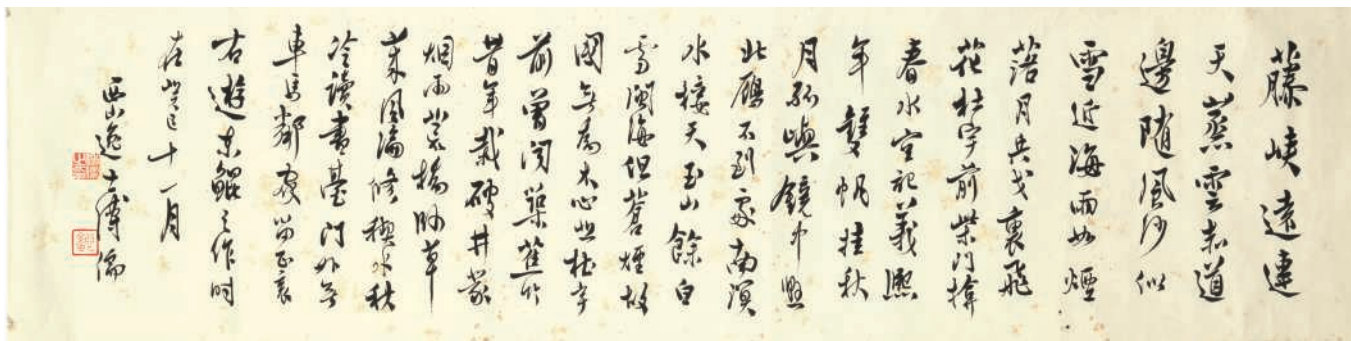 藤峽遠連
天蒸雲赤道
邊隨風沙似
雪近海雨如煙
落月兵戈裏飛
花杜宇前柴門
春水空記義熙
年雙帆挂秋
月孤嶼鏡中懸
北雁不到處南溟
水接天玉山餘白
雪閩海但蒼煙故
國無喬木心悲杜宇
前曾聞築
昔年栽破井叢
烟雨橋草
萊風濤修禊水秋
冷讀書臺門外無
車馬鄰家
右遊東鯤之作時
在癸巳十一月
西山逸士溥儒